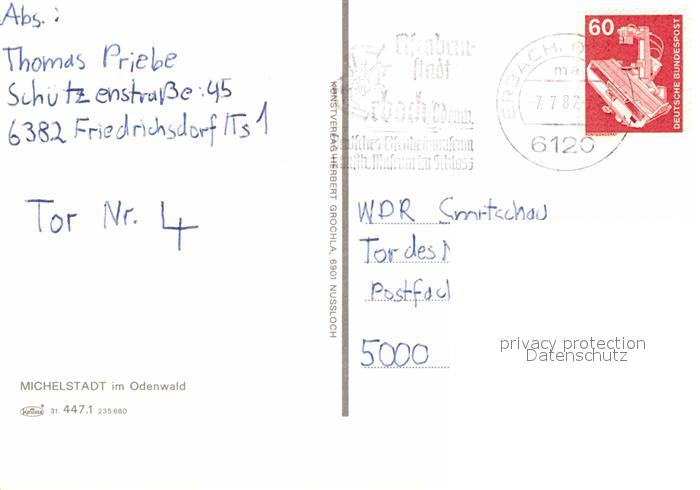 Abs.:
Thomas Priebe
Schützenstraße 45
6382 Friedrichsdorf/Ts 1
Tor Nr. 4
MICHELSTADT im Odenwald
31. 447.1 235 680
KUNSTVERLAG HERBERT GROCHLA, 6901 NUSSLOCH
Elfenbein-
stadt
Erbach, Odenw.
Deutsches Elfenbeinmuseum
Museum im Schloss
ERBACH,
ma
-7.7.82
6120
60
DEUTSCHE BUNDESPOST
WDR Sportschau
Tor des
Postfac
5000
privacy protection
Datenschutz